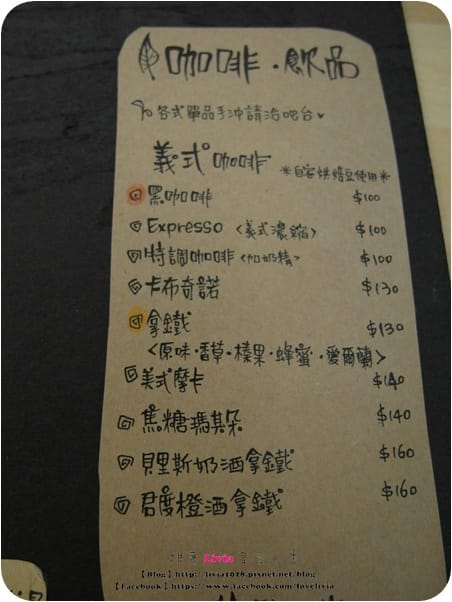 咖啡.飲品
各式單品手沖請洽吧台
義式咖啡 *自家烘焙豆使用*
黑咖啡 $100
Expresso <義式濃縮> $100
特調咖啡 <加奶精> $100
卡布奇諾 $130
拿鐵 $130
<原味.香草.榛果.蜂蜜.愛爾蘭>
美式摩卡 $140
焦糖瑪其朵 $140
貝里斯奶酒拿鐵 $160
君度橙酒拿鐵 $160
Livia
【Blog】http://livia1028.pixnet.net/blog
【Facebook】https://www.facebook.com/lovelivia